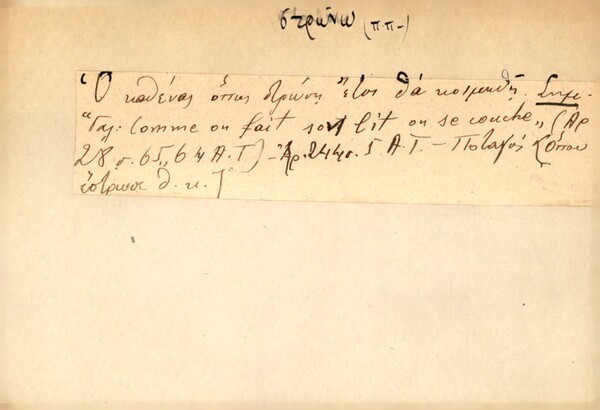 στρώνω (π.π-)
Ὁ καθένας ὅπως στρώση ἔτσι θά κοιμηθῇ. Σημ.
"Γαλ: Comme on fait son lit on se couche„ (Ἀρ
28 σ. 65, 64 Α.Τ) - Ἀρ. 244 σ. 5 Α.Τ. - Ποταμός [ὅπου
ἔστρωσε θ. κ.]